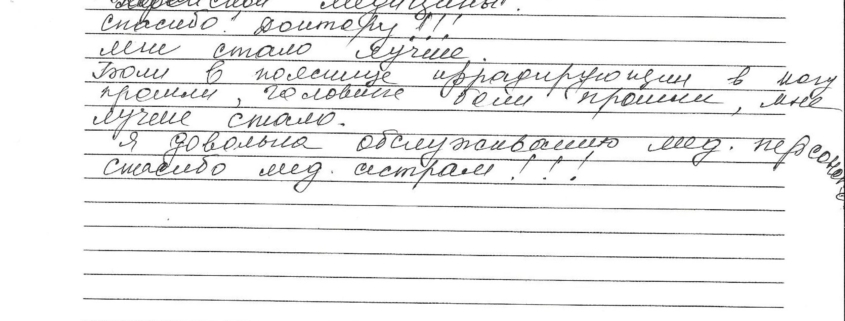 медицины.
спасибо! Доктору!!!
мне стало лучше.
Боли в пояснице иррадирующии в ногу
прошли, головные боли прошли, мне
лучше стало.
Я довольна обслуживанию мед. персонала
спасибо мед. сестрам!!!